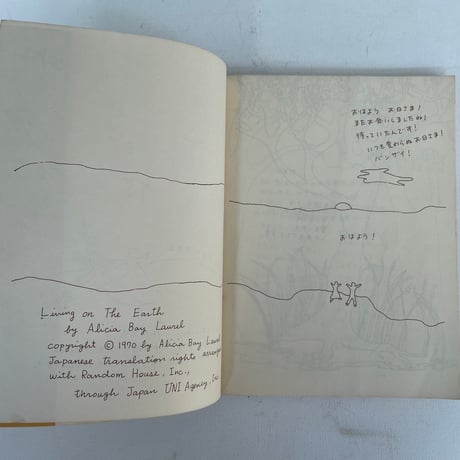 Living on The Earth
by Alicia Bay Laurel
copyright © 1970 by Alicia Bay Laurel
Japanese translation rights arranged
with Random House, Inc.,
through Japan UNI Agency, Inc.
おはよう お日さま！
またお会いしましたね！
待っていたんです！
いつも変わらぬお日さま！
バンザイ！
おはよう！